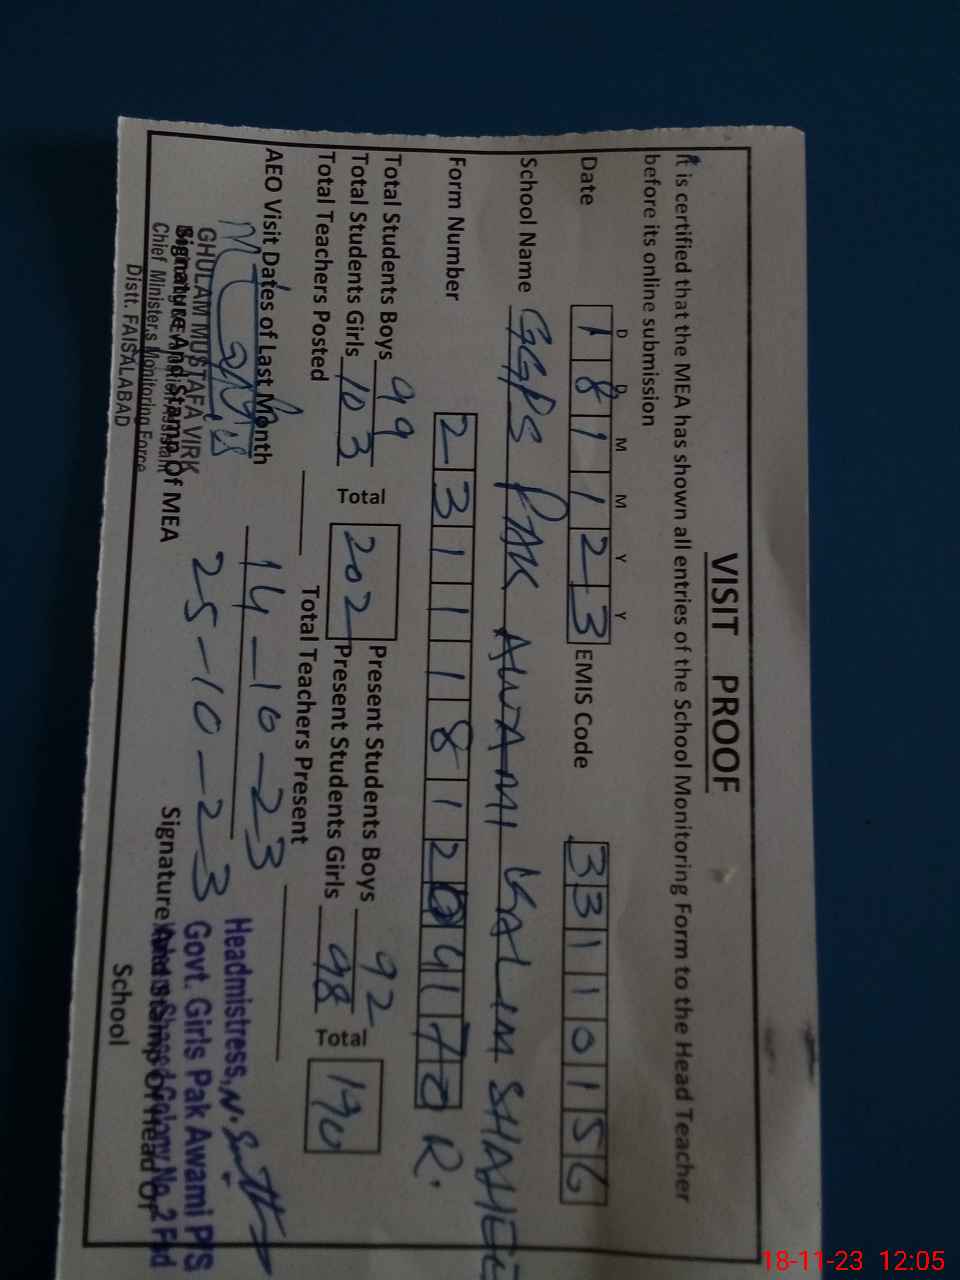 VISIT PROOF
It is certified that the MEA has shown all entries of the School Monitoring Form to the Head Teacher
before its online submission
D D M M Y Y
Date 1 8 1 1 2 3 EMIS Code 3 3 1 1 0 1 5 6
School Name GGPS PAK AWAMI KALIM SHAHEE
Form Number 2 3 1 1 1 8 1 2 0 4 7 0 R.
Total Students Boys 99 Present Students Boys 92
Total Students Girls 103 Total 202 Present Students Girls 98 Total 190
Total Teachers Posted Total Teachers Present
AEO Visit Dates of Last Month 14-10-23
25-10-23
GHULAM MUSTAFA VIRK
Signature And Stamp Of MEA
Chief Minister,s Monitoring Force
Distt. FAISALABAD
Headmistress,
Govt. Girls Pak Awami P/S
Colony No.2 Fsd
Signature And Stamp Of Head Of
School
18-11-23 12:05